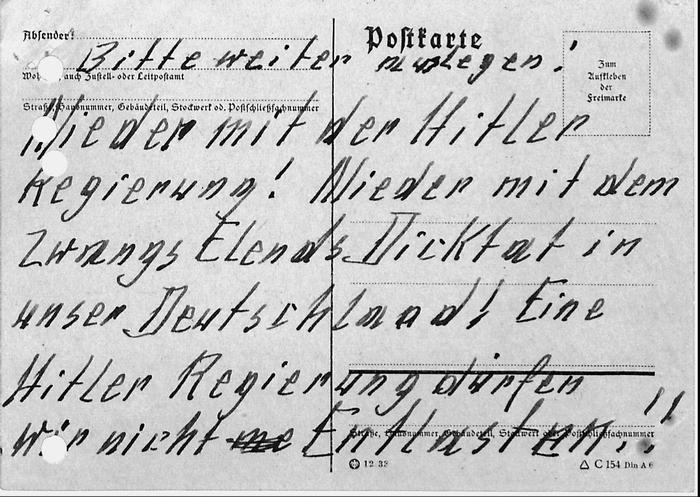 Absender:
Postkarte
Bitte weiter weglegen!
Wohnort, auch Zustell- oder Leitpostamt
Zum
Aufkleben
der
Freimarke
Straße, Hausnummer, Gebäudeteil, Stockwerk od. Postschließfachnummer
Nieder mit der Hitler
Regierung! Nieder mit dem
Zwangs Elends Dicktat in
unser Deutschlaad! Eine
Hitler Regierung dürfen
wir nicht Entlasten..!!
Straße, Hausnummer, Gebäudeteil, Stockwerk od. Postschließfachnummer
12 38
C 154 Din A 6